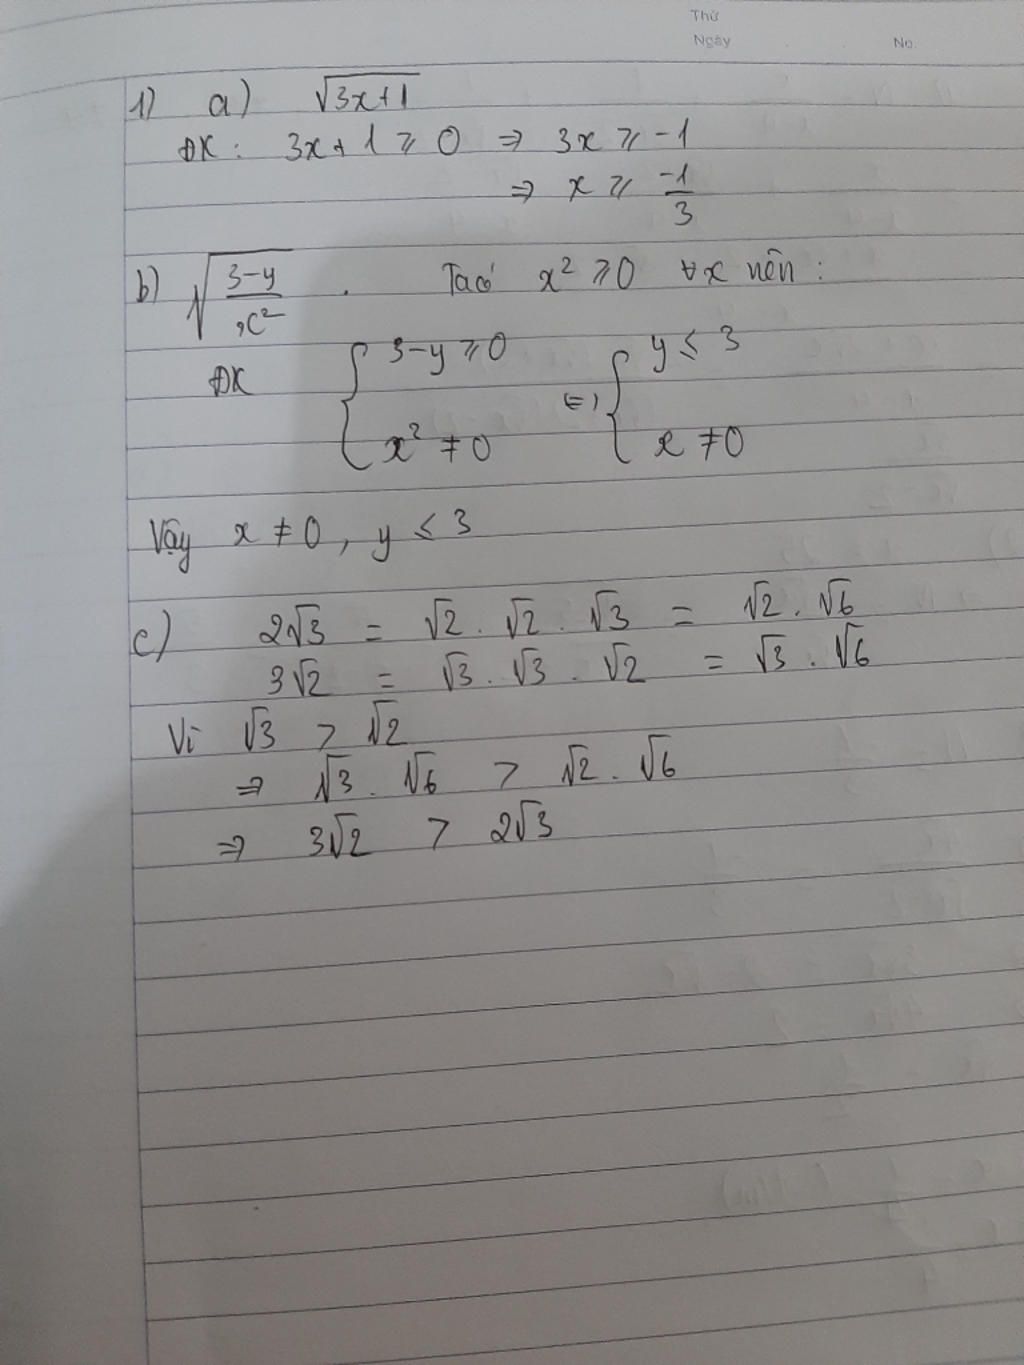 Thứ
Ngày No.
1) a) √3x+1
ĐK: 3x+1 ≥ 0 ⇒ 3x ≥ -1
⇒ x ≥ -1/3
b) √(3-y)/x² . Ta có x² ≥ 0 ∀x nên :
ĐK { 3-y ≥ 0 ⇔ { y ≤ 3
x² ≠ 0 x ≠ 0
Vậy x ≠ 0, y ≤ 3
c) 2√3 = √2 . √2 . √3 = √2 . √6
3√2 = √3 . √3 . √2 = √3 . √6
Vì √3 > √2
⇒ √3 . √6 > √2 . √6
⇒ 3√2 > 2√3